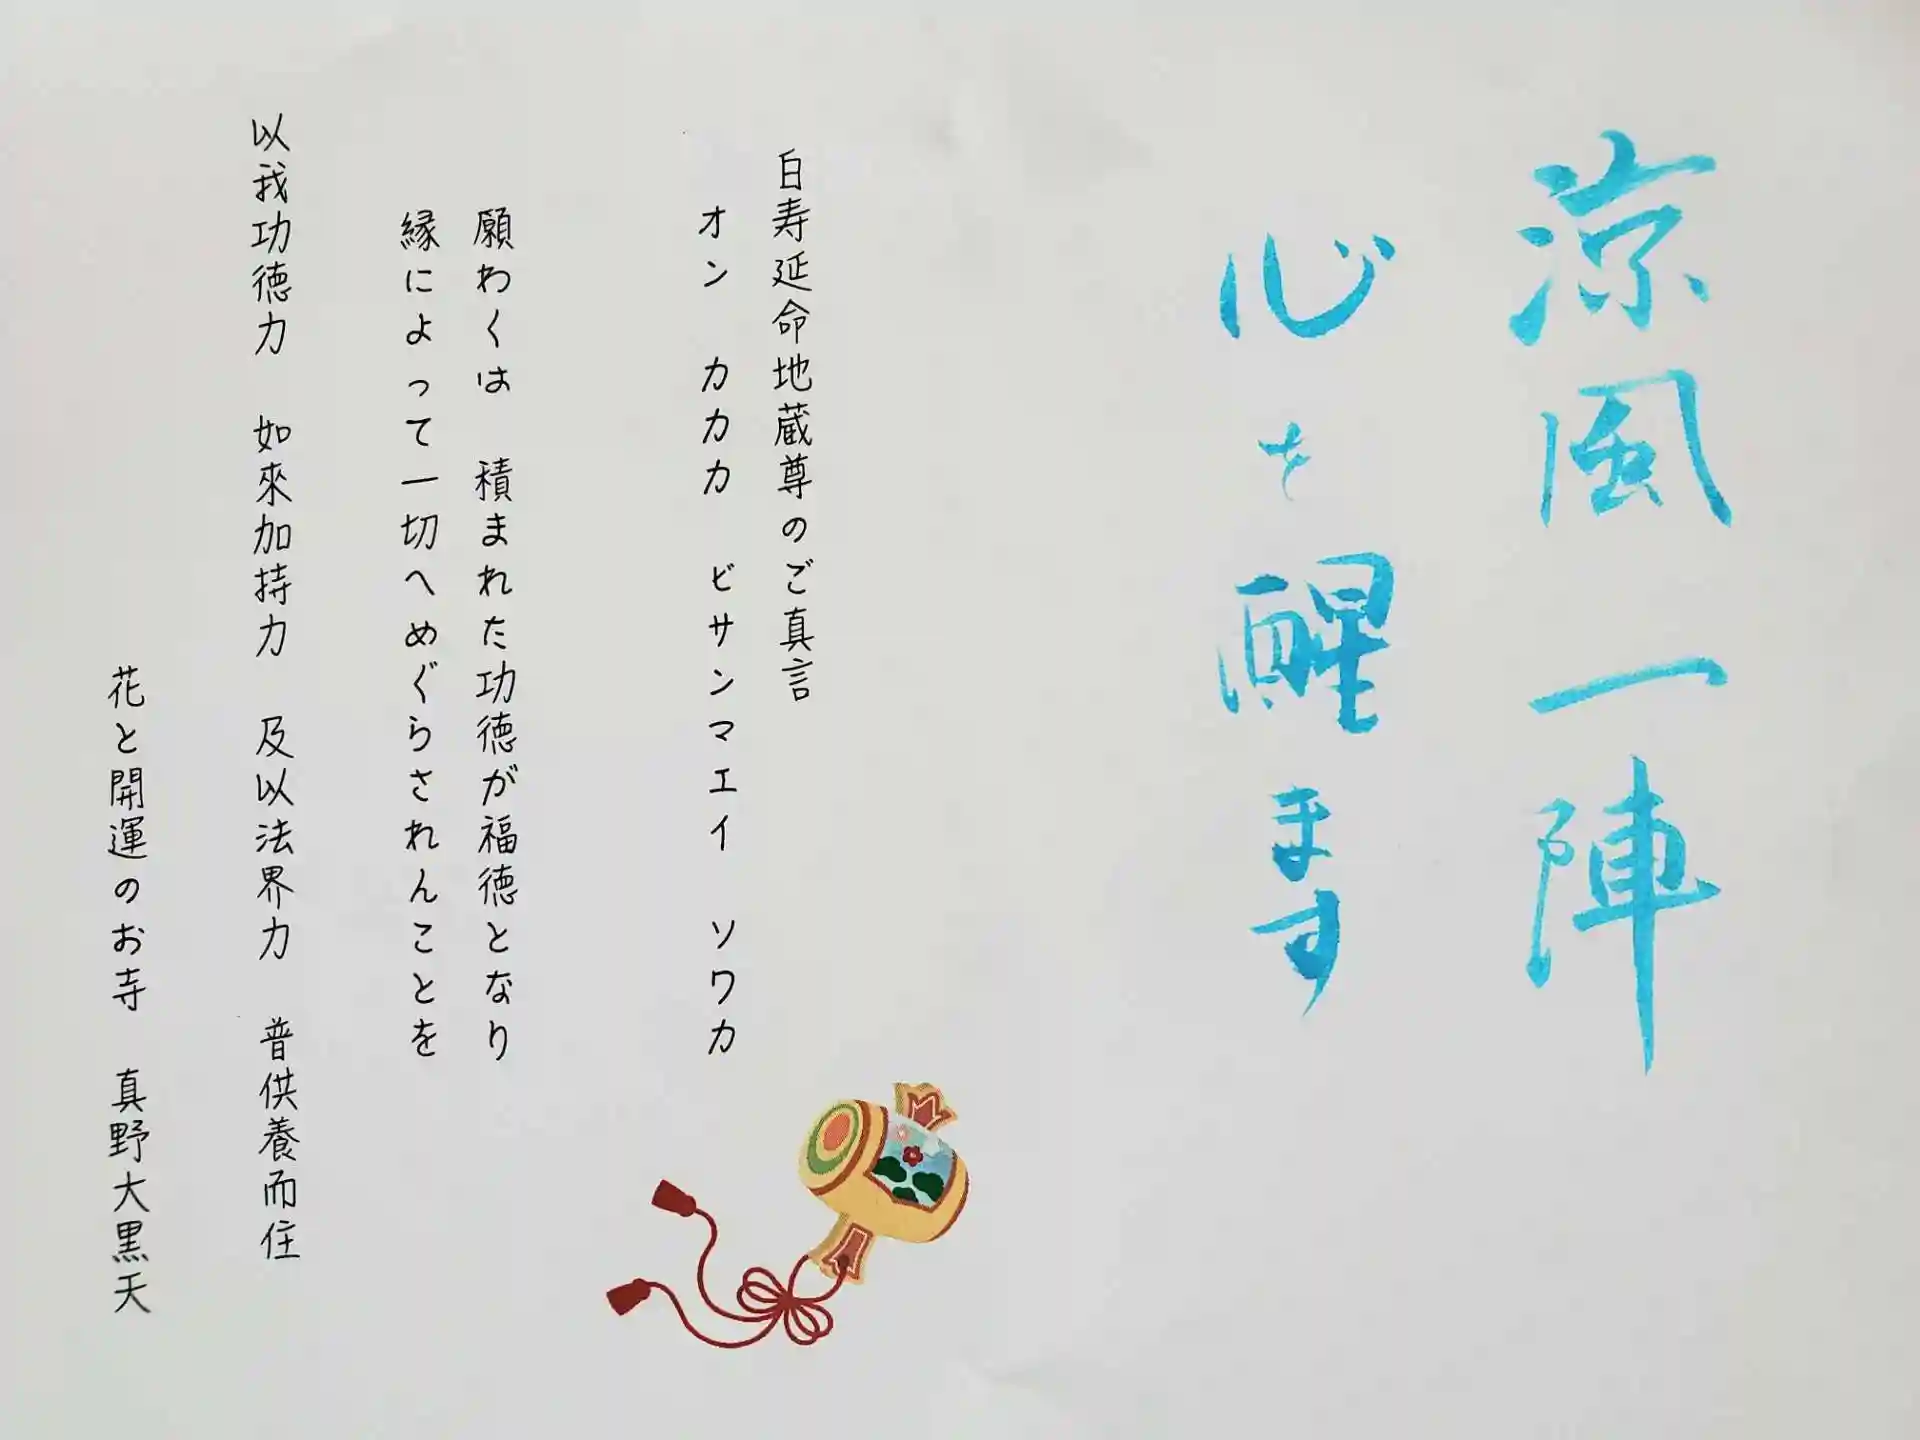 涼風一陣
心を醒ます
白寿延命地蔵尊のご真言
オン　カカカ　ビサンマエイ　ソワカ
願わくは　積まれた功徳が福徳となり
縁によって一切へめぐらされんことを
以我功徳力　如來加持力　及以法界力　普供養而住
花と開運のお寺　真野大黒天